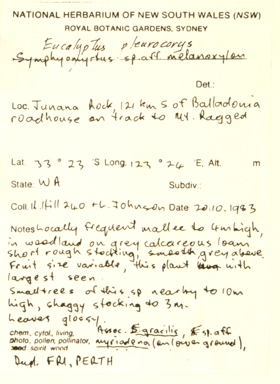 NATIONAL HERBARIUM OF NEW SOUTH WALES (NSW)
ROYAL BOTANIC GARDENS, SYDNEY
Eucalyptus pleurocorys
Symphyomyrtus sp. aff melanoxylon
Det.:
Loc. Junana Rock, 121 km S of Balladonia
roadhouse on track to Mt. Ragged
Lat. 33 ° 23 'S Long. 123 ° 24 'E, Alt. m
State: WA Subdiv.:
Coll. K. Hill 240 + L. Johnson Date 20.10.1983
Notes Locally frequent mallee to 4m high,
in woodland on grey calcareous loam
short rough stocking, smooth grey above,
fruit size variable, this plant with
largest seen.
Small trees of this sp nearby to 10m
high, shaggy stocking to 3m.
Leaves glossy.
chem, cytol, living, Assoc. E gracilis, E sp. aff
photo, pollen, pollinator, myriadena (on lower ground),
seed spirit wood
Dupl FRI, PERTH